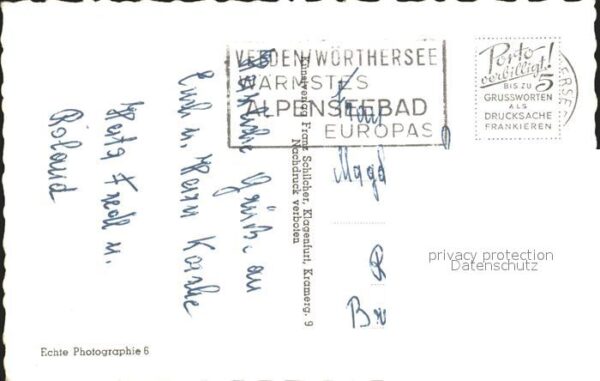 VELDEN/WÖRTHERSEE
WÄRMSTES
ALPENSEEBAD
EUROPAS
Porto
verbilligt!
BIS ZU 5
GRUSSWORTEN
ALS
DRUCKSACHE
FRANKIEREN
Herzliche Grüße an
Euch u. Herrn
Fredl u.
Roland
Kunstverlag Franz Schilcher, Klagenfurt, Kramerg. 9
Nachdruck verboten
Frau
Magd
Br
privacy protection
Datenschutz
Echte Photographie 6